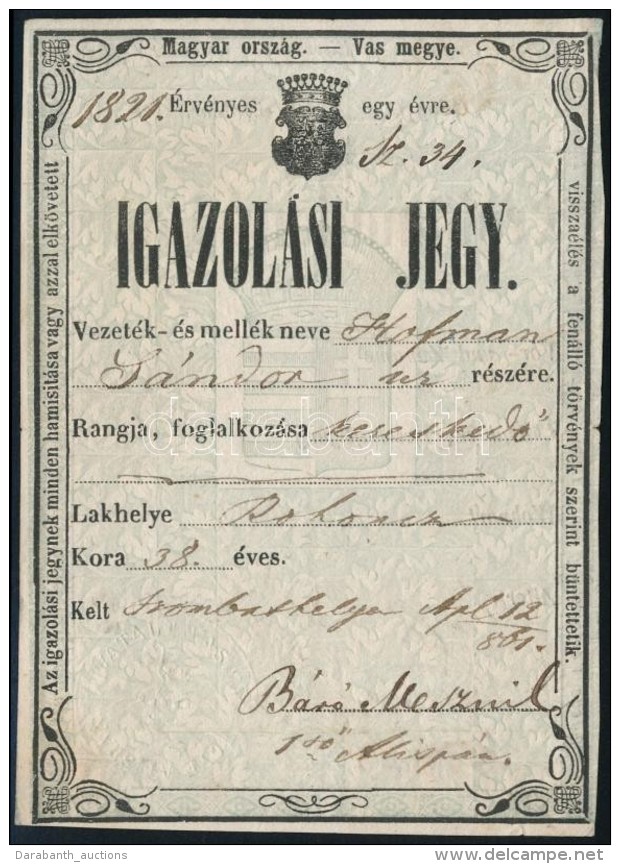 Magyar ország. — Vas megye.
1821. Érvényes egy évre.
Sz. 34.
IGAZOLÁSI JEGY.
Vezeték- és mellék neve Hofman
Sándor úr részére.
Rangja, foglalkozása kereskedő
Lakhelye Rohoncz
Kora 38. éves.
Kelt Szombathelyen Apl. 12
861.
Báró Mesznil
1ső Alispán.
Az igazolási jegynek minden hamisitása vagy azzal elkövetett
visszaélés a fenálló törvények szerint büntettetik.
darabanth
Darabanth_auctions
delcampe.net